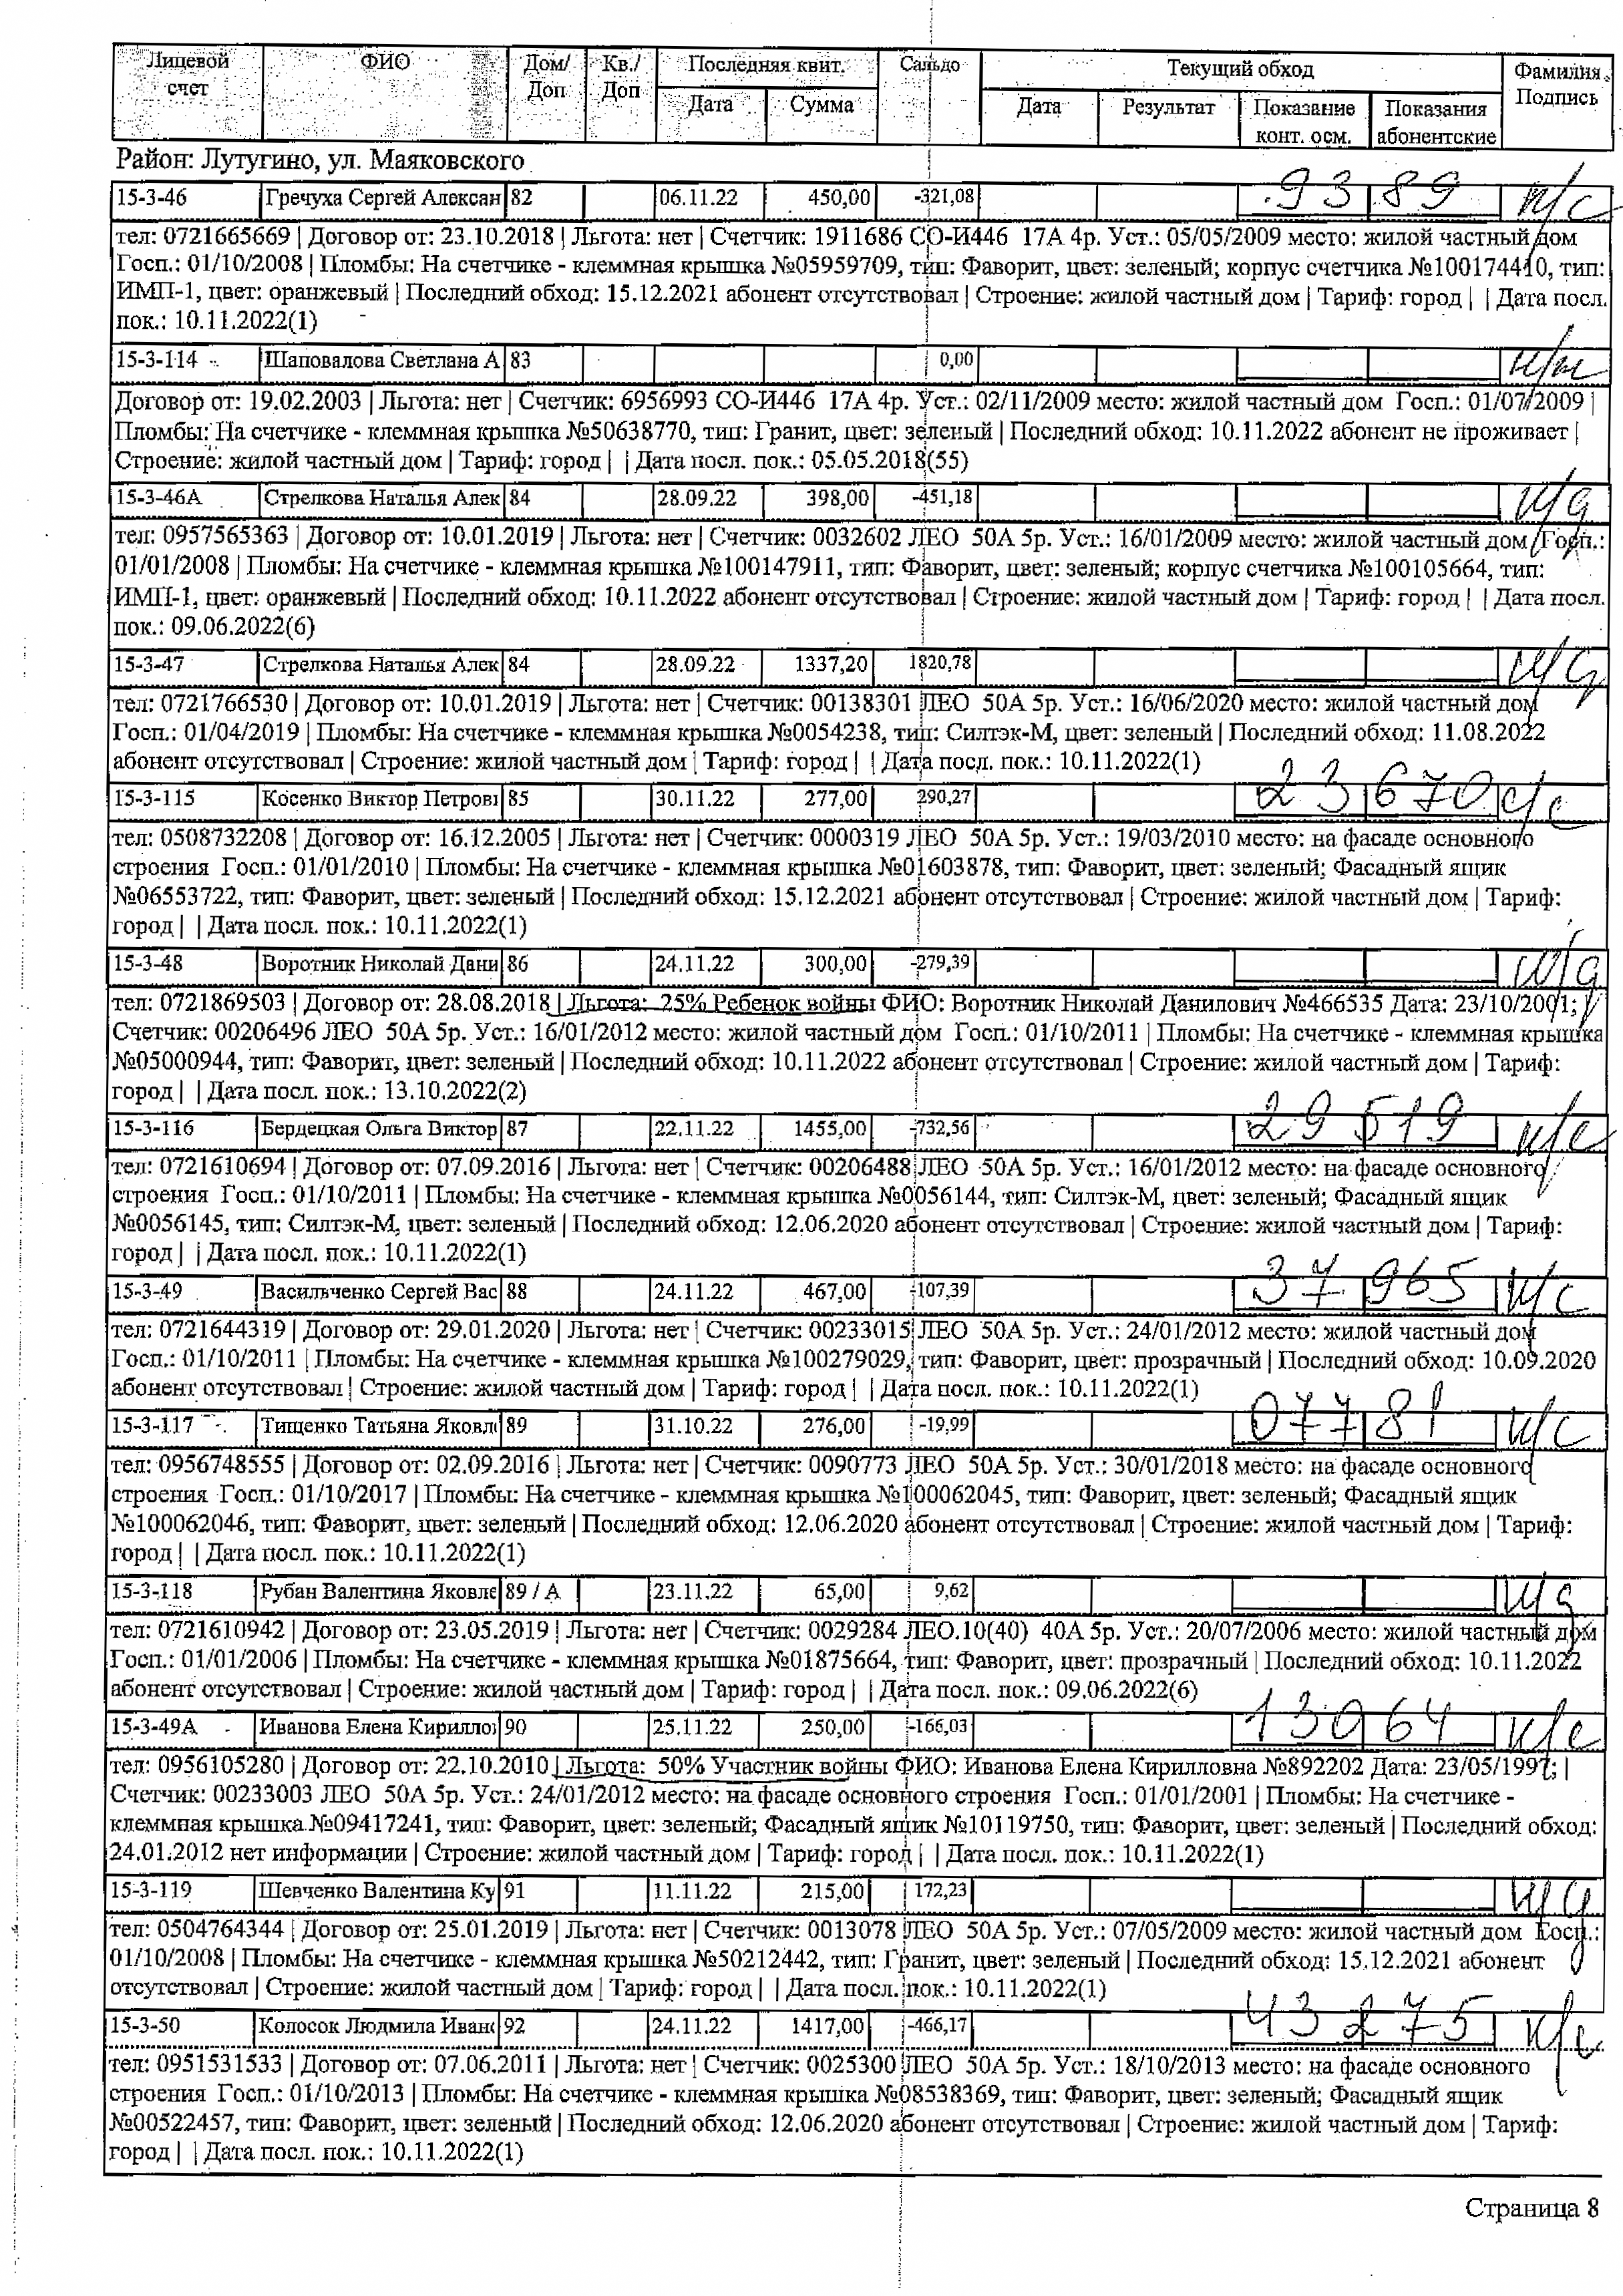 Лицевой счет ФИО Дом/ Доп Кв./ Доп Последняя квит. Сальдо Текущий обход Фамилия Подпись
Дата Сумма Дата Результат Показание конт. осм. Показания абонентские
Район: Лутугино, ул. Маяковского
15-3-46 Гречуха Сергей Алексан 82 06.11.22 450,00 -321,08 9389 н/с
тел: 0721665669 | Договор от: 23.10.2018 | Льгота: нет | Счетчик: 1911686 СО-И446 17А 4р. Уст.: 05/05/2009 место: жилой частный дом
Госп.: 01/10/2008 | Пломбы: На счетчике - клеммная крышка №05959709, тип: Фаворит, цвет: зеленый; корпус счетчика №100174410, тип:
ИМП-1, цвет: оранжевый | Последний обход: 15.12.2021 абонент отсутствовал | Строение: жилой частный дом | Тариф: город | | Дата посл.
пок.: 10.11.2022(1)
15-3-114 Шаповалова Светлана А 83 0,00
Договор от: 19.02.2003 | Льгота: нет | Счетчик: 6956993 СО-И446 17А 4р. Уст.: 02/11/2009 место: жилой частный дом Госп.: 01/07/2009 |
Пломбы: На счетчике - клеммная крышка №50638770, тип: Гранит, цвет: зеленый | Последний обход: 10.11.2022 абонент не проживает |
Строение: жилой частный дом | Тариф: город | | Дата посл. пок.: 05.05.2018(55)
15-3-46А Стрелкова Наталья Алек 84 28.09.22 398,00 -451,18
тел: 0957565363 | Договор от: 10.01.2019 | Льгота: нет | Счетчик: 0032602 ЛЕО 50А 5р. Уст.: 16/01/2009 место: жилой частный дом Госп.:
01/01/2008 | Пломбы: На счетчике - клеммная крышка №100147911, тип: Фаворит, цвет: зеленый; корпус счетчика №100105664, тип:
ИМП-1, цвет: оранжевый | Последний обход: 10.11.2022 абонент отсутствовал | Строение: жилой частный дом | Тариф: город | | Дата посл.
пок.: 09.06.2022(6)
15-3-47 Стрелкова Наталья Алек 84 28.09.22 1337,20 1820,78
тел: 0721766530 | Договор от: 10.01.2019 | Льгота: нет | Счетчик: 00138301 ЛЕО 50А 5р. Уст.: 16/06/2020 место: жилой частный дом
Госп.: 01/04/2019 | Пломбы: На счетчике - клеммная крышка №0054238, тип: Силтэк-М, цвет: зеленый | Последний обход: 11.08.2022
абонент отсутствовал | Строение: жилой частный дом | Тариф: город | | Дата посл. пок.: 10.11.2022(1)
15-3-115 Косенко Виктор Петрови 85 30.11.22 277,00 290,27 23670 с/с
тел: 0508732208 | Договор от: 16.12.2005 | Льгота: нет | Счетчик: 0000319 ЛЕО 50А 5р. Уст.: 19/03/2010 место: на фасаде основного
строения Госп.: 01/01/2010 | Пломбы: На счетчике - клеммная крышка №01603878, тип: Фаворит, цвет: зеленый; Фасадный ящик
№06553722, тип: Фаворит, цвет: зеленый | Последний обход: 15.12.2021 абонент отсутствовал | Строение: жилой частный дом | Тариф:
город | | Дата посл. пок.: 10.11.2022(1)
15-3-48 Воротник Николай Дани 86 24.11.22 300,00 -279,39
тел: 0721869503 | Договор от: 28.08.2018 | Льгота: 25% Ребенок войны ФИО: Воротник Николай Данилович №466535 Дата: 23/10/2001; |
Счетчик: 00206496 ЛЕО 50А 5р. Уст.: 16/01/2012 место: жилой частный дом Госп.: 01/10/2011 | Пломбы: На счетчике - клеммная крышка
№05000944, тип: Фаворит, цвет: зеленый | Последний обход: 10.11.2022 абонент отсутствовал | Строение: жилой частный дом | Тариф:
город | | Дата посл. пок.: 13.10.2022(2)
15-3-116 Бердецкая Ольга Виктор 87 22.11.22 1455,00 -732,56 29519 н/с
тел: 0721610694 | Договор от: 07.09.2016 | Льгота: нет | Счетчик: 00206488 ЛЕО 50А 5р. Уст.: 16/01/2012 место: на фасаде основного
строения Госп.: 01/10/2011 | Пломбы: На счетчике - клеммная крышка №0056144, тип: Силтэк-М, цвет: зеленый; Фасадный ящик
№0056145, тип: Силтэк-М, цвет: зеленый | Последний обход: 12.06.2020 абонент отсутствовал | Строение: жилой частный дом | Тариф:
город | | Дата посл. пок.: 10.11.2022(1)
15-3-49 Васильченко Сергей Вас 88 24.11.22 467,00 -107,39 37965 н/с
тел: 0721644319 | Договор от: 29.01.2020 | Льгота: нет | Счетчик: 00233015 ЛЕО 50А 5р. Уст.: 24/01/2012 место: жилой частный дом
Госп.: 01/10/2011 | Пломбы: На счетчике - клеммная крышка №100279029, тип: Фаворит, цвет: прозрачный | Последний обход: 10.09.2020
абонент отсутствовал | Строение: жилой частный дом | Тариф: город | | Дата посл. пок.: 10.11.2022(1)
15-3-117 Тищенко Татьяна Яковл 89 31.10.22 276,00 -19,99 07781 н/с
тел: 0956748555 | Договор от: 02.09.2016 | Льгота: нет | Счетчик: 0090773 ЛЕО 50А 5р. Уст.: 30/01/2018 место: на фасаде основного
строения Госп.: 01/10/2017 | Пломбы: На счетчике - клеммная крышка №100062045, тип: Фаворит, цвет: зеленый; Фасадный ящик
№100062046, тип: Фаворит, цвет: зеленый | Последний обход: 12.06.2020 абонент отсутствовал | Строение: жилой частный дом | Тариф:
город | | Дата посл. пок.: 10.11.2022(1)
15-3-118 Рубан Валентина Яковле 89 / А 23.11.22 65,00 9,62
тел: 0721610942 | Договор от: 23.05.2019 | Льгота: нет | Счетчик: 0029284 ЛЕО.10(40) 40А 5р. Уст.: 20/07/2006 место: жилой частный дом
Госп.: 01/01/2006 | Пломбы: На счетчике - клеммная крышка №01875664, тип: Фаворит, цвет: прозрачный | Последний обход: 10.11.2022
абонент отсутствовал | Строение: жилой частный дом | Тариф: город | | Дата посл. пок.: 09.06.2022(6)
15-3-49А Иванова Елена Кирилло 90 25.11.22 250,00 -166,03 13064 н/с
тел: 0956105280 | Договор от: 22.10.2010 | Льгота: 50% Участник войны ФИО: Иванова Елена Кирилловна №892202 Дата: 23/05/1997; |
Счетчик: 00233003 ЛЕО 50А 5р. Уст.: 24/01/2012 место: на фасаде основного строения Госп.: 01/01/2001 | Пломбы: На счетчике -
клеммная крышка №09417241, тип: Фаворит, цвет: зеленый; Фасадный ящик №10119750, тип: Фаворит, цвет: зеленый | Последний обход:
24.01.2012 нет информации | Строение: жилой частный дом | Тариф: город | | Дата посл. пок.: 10.11.2022(1)
15-3-119 Шевченко Валентина Ку 91 11.11.22 215,00 172,23
тел: 0504764344 | Договор от: 25.01.2019 | Льгота: нет | Счетчик: 0013078 ЛЕО 50А 5р. Уст.: 07/05/2009 место: жилой частный дом Госп.:
01/10/2008 | Пломбы: На счетчике - клеммная крышка №50212442, тип: Гранит, цвет: зеленый | Последний обход: 15.12.2021 абонент
отсутствовал | Строение: жилой частный дом | Тариф: город | | Дата посл. пок.: 10.11.2022(1)
15-3-50 Колосок Людмила Иван 92 24.11.22 1417,00 -466,17 43275 н/с
тел: 0951531533 | Договор от: 07.06.2011 | Льгота: нет | Счетчик: 0025300 ЛЕО 50А 5р. Уст.: 18/10/2013 место: на фасаде основного
строения Госп.: 01/10/2013 | Пломбы: На счетчике - клеммная крышка №08538369, тип: Фаворит, цвет: зеленый; Фасадный ящик
№00522457, тип: Фаворит, цвет: зеленый | Последний обход: 12.06.2020 абонент отсутствовал | Строение: жилой частный дом | Тариф:
город | | Дата посл. пок.: 10.11.2022(1)
Страница 8